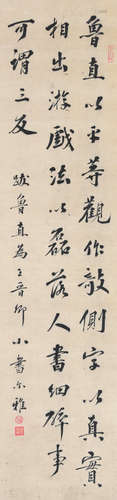 魯直以平等觀作敧側字以真實
相出游戲法以磊落人書細碎事
可謂三反
跋魯直為王晉卿小書爾雅